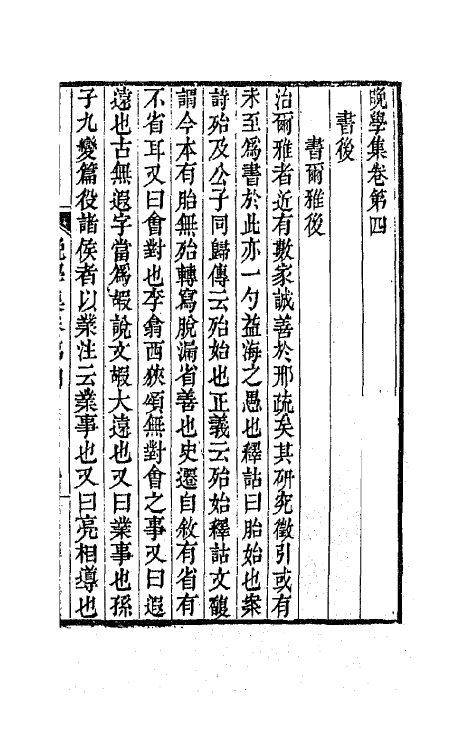 晚學集卷第四
書後
書爾雅後
治爾雅者近有數家誠善於邢疏矣其研究徵引或有
未至爲書於此亦一勺益海之愚也釋詁曰胎始也案
詩殆及公子同歸傳云殆始也正義云殆始釋詁文馥
謂今本有胎無殆轉寫脫漏省善也史遷自敘有省有
不省耳又曰會對也李翕西狹頌無對會之事又曰遐
遠也古無遐字當爲嘏說文嘏大遠也又曰業事也孫
子九變篇役諸侯者以業注云業事也又曰亮相導也
晚學集卷第四